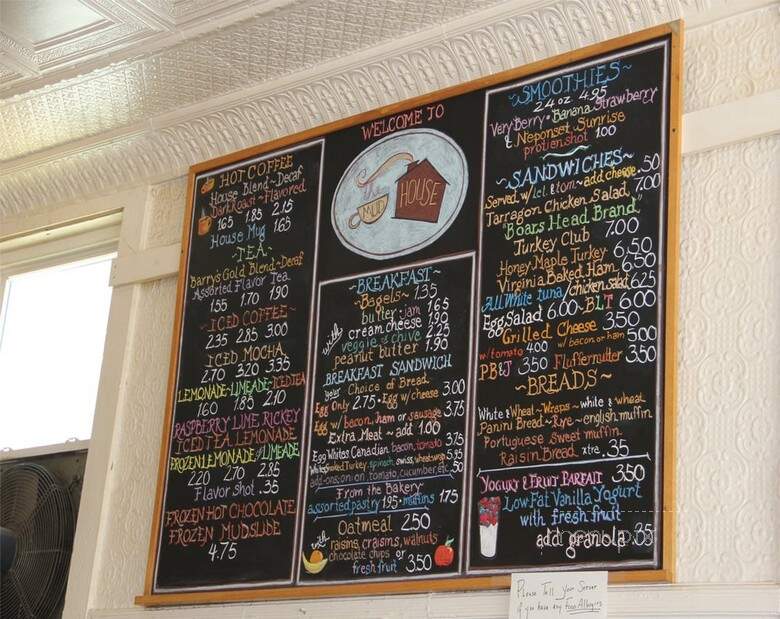 HOT COFFEE
House Blend~Decaf
Dark Roast~Flavored
1.65 1.85 2.15
House Mug 1.65
~TEA~
Barry's Gold Blend~Decaf
Assorted Flavor Tea
1.55 1.70 1.90
~ICED COFFEE~
2.35 2.85 3.00
ICED MOCHA
2.70 3.20 3.35
LEMONADE~LIMEADE~ICED TEA
1.60 1.85 2.10
RASPBERRY LIME RICKEY
ICED TEA LEMONADE
FROZEN LEMONADE or LIMEADE
2.20 2.70 2.85
Flavor Shot .35
FROZEN HOT CHOCOLATE
FROZEN MUDSLIDE
4.75
WELCOME TO
the
MUD
HOUSE
~BREAKFAST~
~Bagels~ 1.35
with
butter~jam 1.65
cream cheese 1.90
veggie or chive 2.25
peanut butter 1.90
BREAKFAST SANDWICH
your Choice of Bread
Egg Only 2.75 • Egg w/cheese 3.00
Egg w/ bacon, ham or sausage 3.75
Extra Meat ~ add 1.00
Egg Whites Canadian bacon, tomato 3.75
Smoked Turkey, spinach, swiss, wheat wrap 5.95
add-ons: onion, tomato, cucumber, etc .50
From the Bakery
assorted pastry 1.95 • muffins 1.75
Oatmeal 2.50
with
raisins, craisins, walnuts
chocolate chips or
fresh fruit 3.50
~SMOOTHIES~
24 oz 4.95
Very Berry • Banana Strawberry
& Neponset Sunrise
protien shot 1.00
~SANDWICHES~
Served w/ let. & tom ~ add cheese .50
Tarragon Chicken Salad 7.00
"Boars Head Brand"
Turkey Club 7.00
Honey Maple Turkey 6.50
Virginia Baked Ham 6.50
All White tuna/chicken salad 6.25
Egg Salad 6.00 ~ BLT 6.00
Grilled Cheese 3.50
w/tomato 4.00 w/ bacon or ham 5.00
PB&J 3.50 Fluffernutter 3.50
~BREADS~
White & Wheat ~ Wraps ~ white & wheat
Panini Bread ~ Rye ~ english muffin
Portuguese Sweet muffin
Raisin Bread xtra .35
YOGURT & FRUIT PARFAIT 3.50
Low Fat Vanilla Yogurt
with fresh fruit
add granola .35
Please Tell Your Server
if you have any Food Allergies